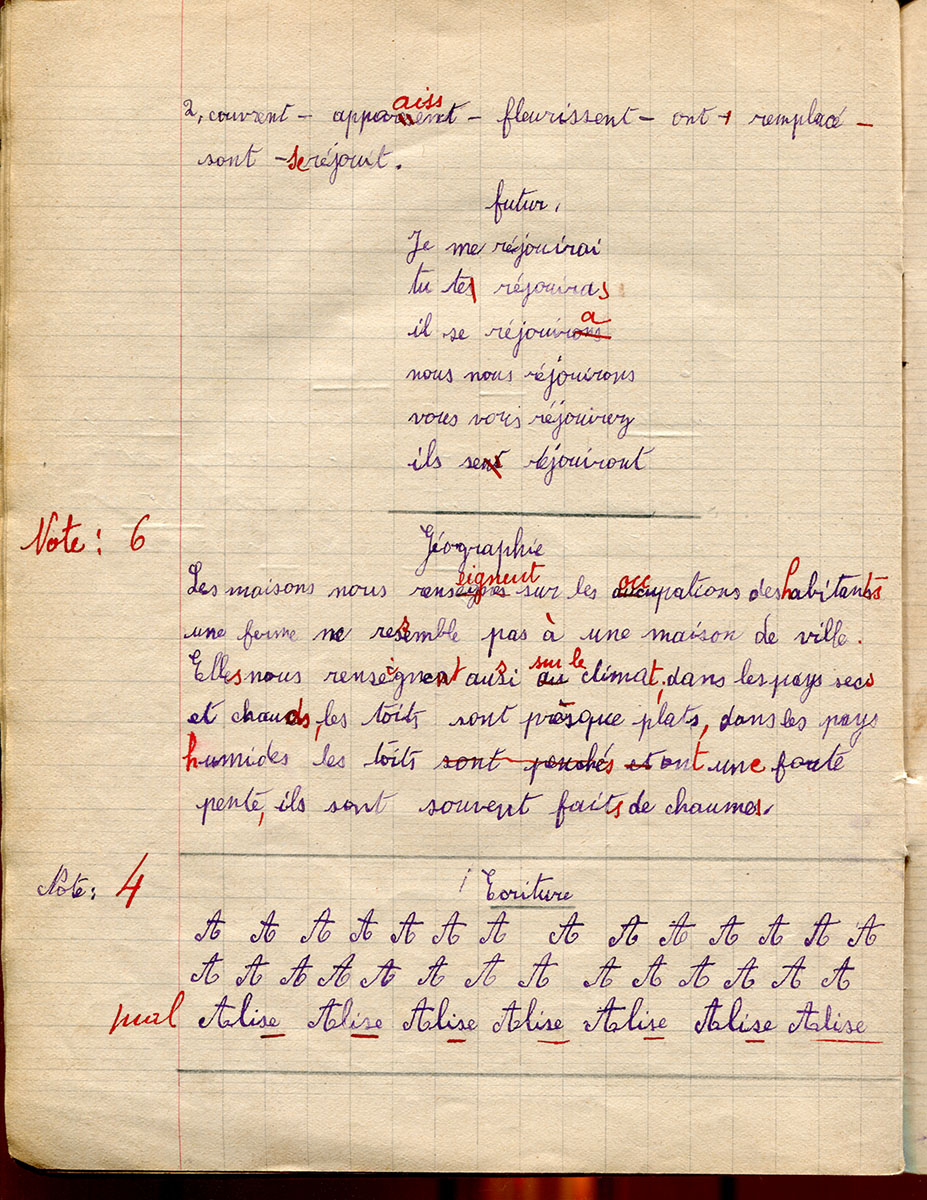 2, couvrent - apparaissent - fleurissent - ont + remplacé -
sont - se réjouit.
futur.
Je me réjouirai
tu te réjouiras
il se réjouira
nous nous réjouirons
vous vous réjouirez
ils se réjouiront
Note: 6
Géographie
Les maisons nous renseignent sur les occupations des habitants
une ferme ne ressemble pas à une maison de ville.
Elles nous renseignent aussi sur le climat, dans les pays secs
et chauds, les toits sont presque plats, dans les pays
humides les toits sont penchés et ont une forte
pente, ils sont souvent faits de chaumes.
Note: 4
Ecriture
A A A A A A A A A A A A A A
A A A A A A A A A A A A A A
mal Alise Alise Alise Alise Alise Alise Alise